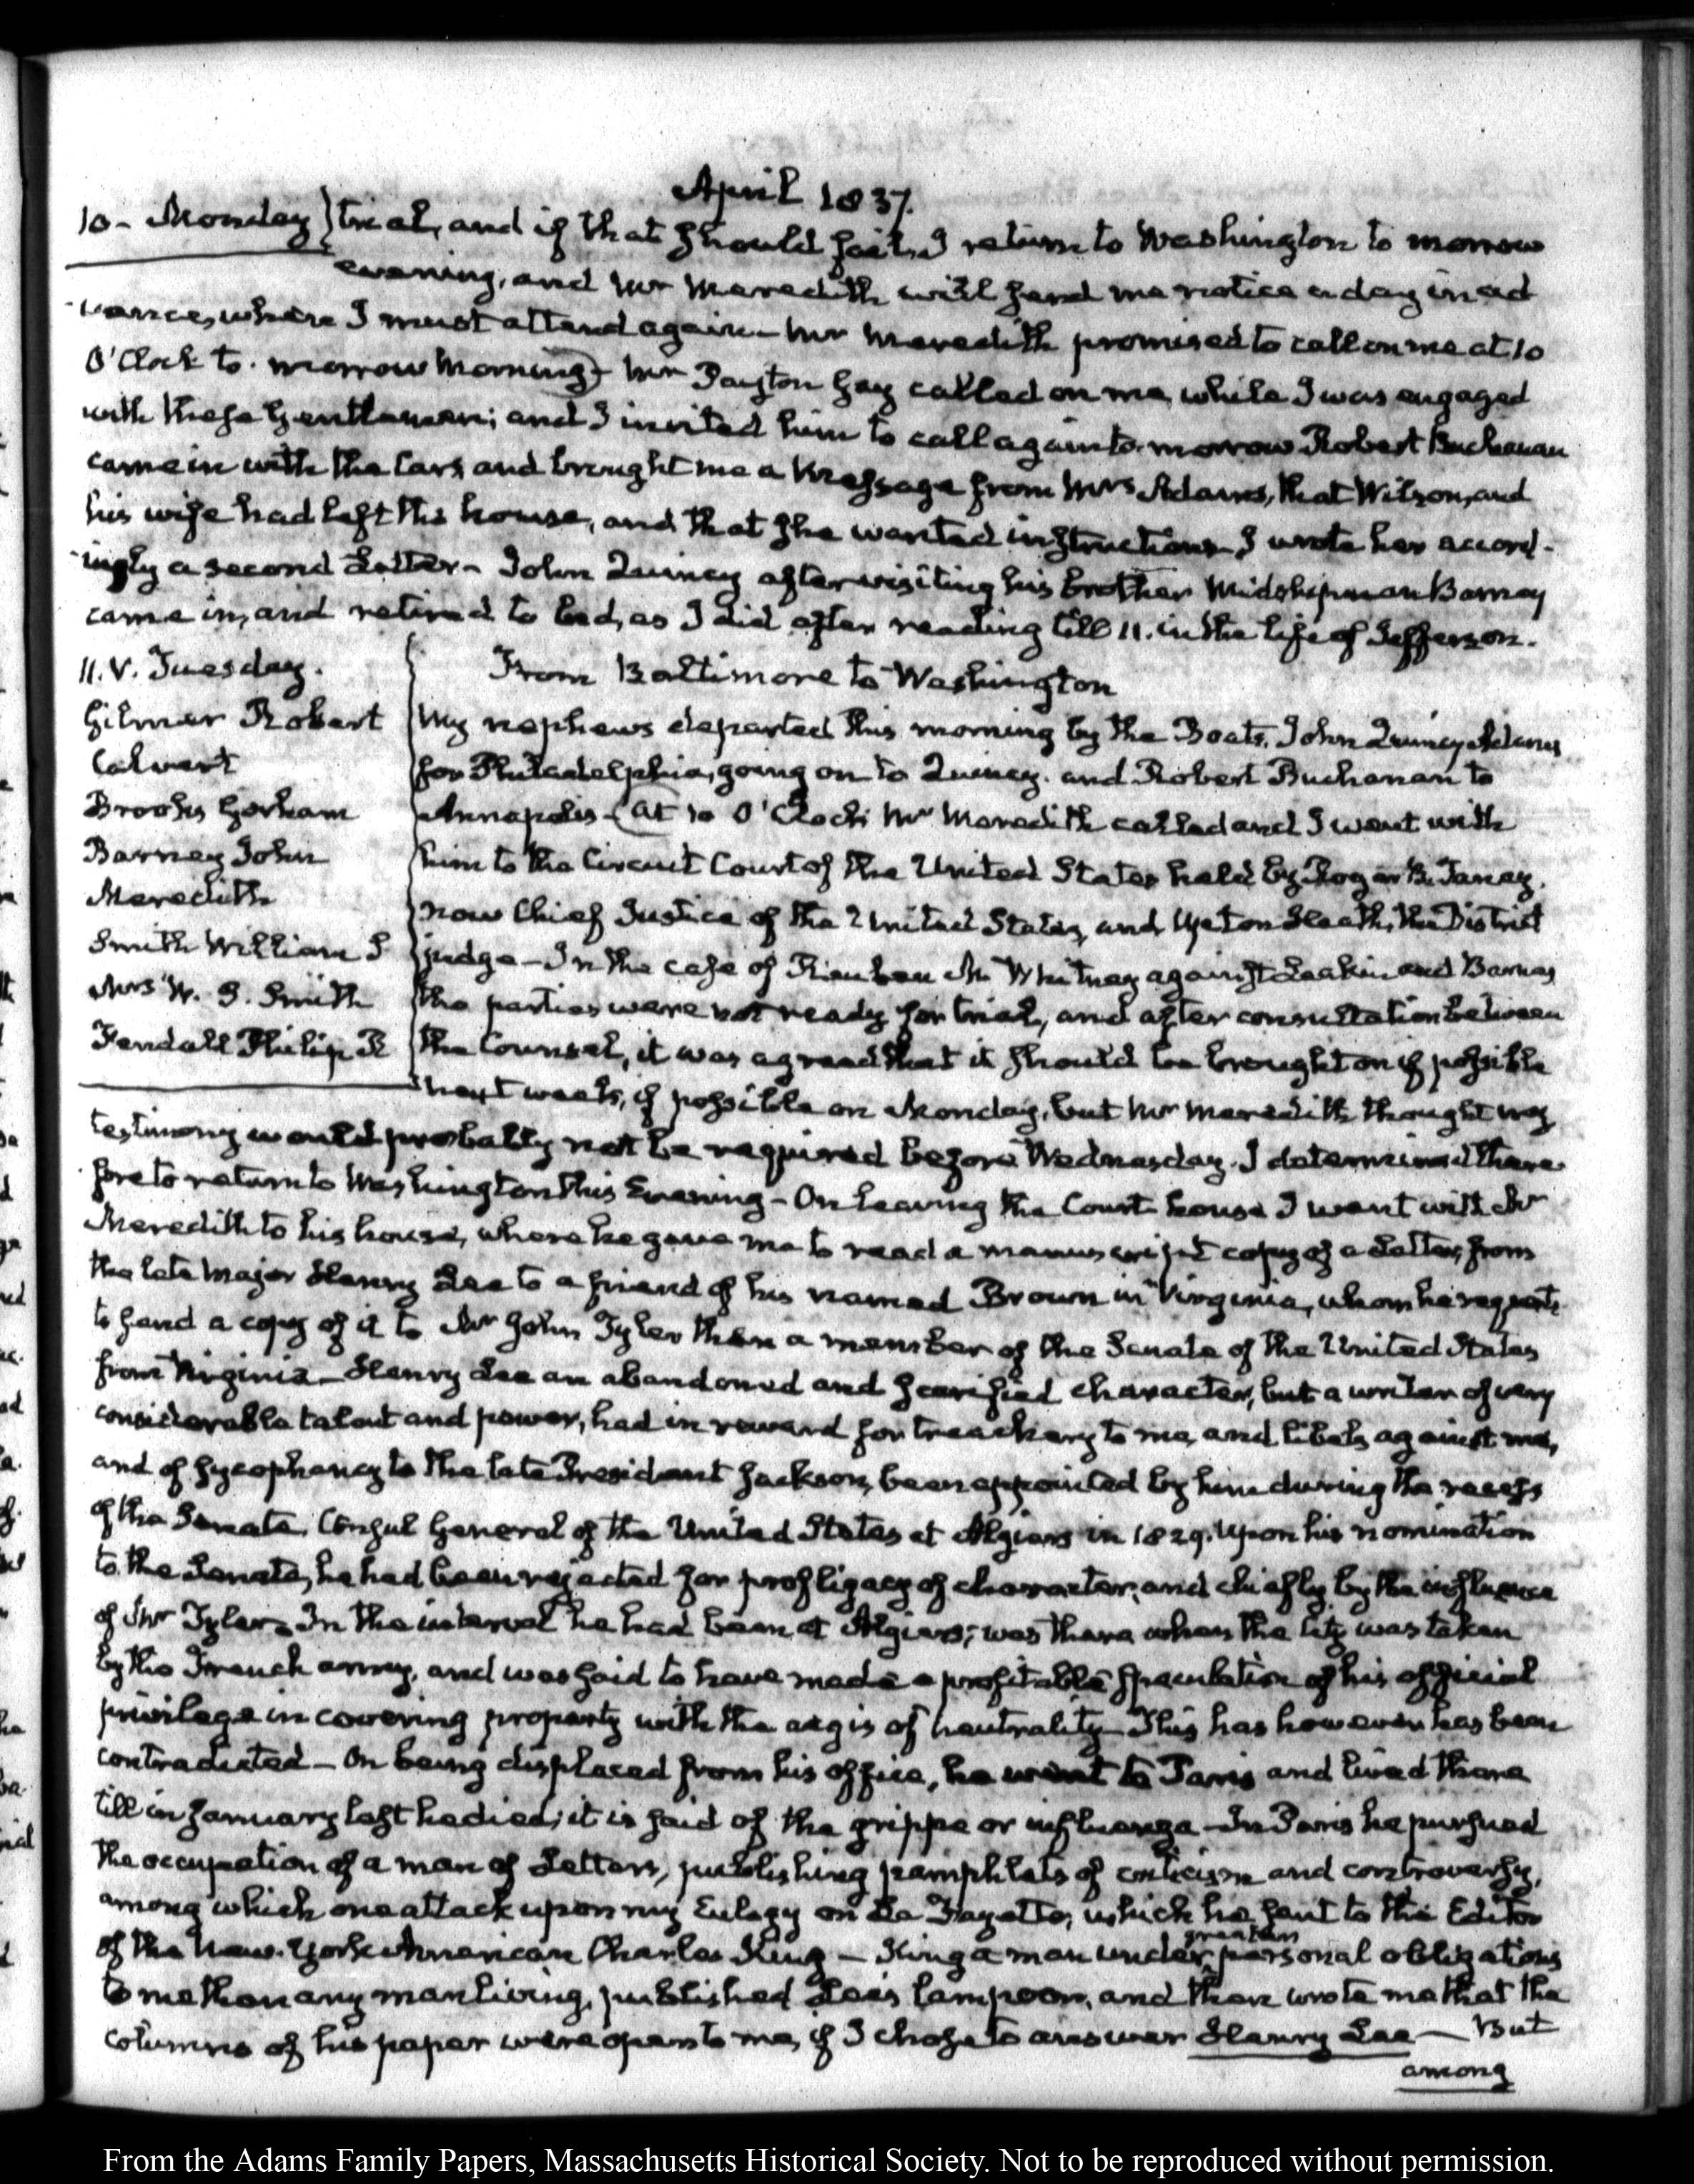 April 1837.
10 - Monday } trial, and if that should fail, I return to Washington to morrow
evening, and Mr Meredith will send me notice a day in ad
-vance, where I must attend again — Mr Meredith promised to call on me at 10
O'Clock to-morrow Morning) Mr Payton Gay called on me, while I was engaged
with these Gentlemen; and I invited him to call again to-morrow Robert Buchanan
came in with the Cars and brought me a Message from Mrs Adams, that Wilson, and
his wife had left the house, and that she wanted instructions. I wrote her accord-
-ingly a second Letter — John Quincy after visiting his brother Midshipman Barney
came in, and retired to bed, as I did after reading till 11. in the life of Jefferson.
11. V. Tuesday.
Gilmer Robert
Calvert
Brooks Gorham
Barney John
Meredith
Smith William S
Mrs W. S. Smith
Fendall Philip R
From Baltimore to Washington
My nephews departed this morning by the Boats. John Quincy Adams
for Philadelphia, going on to Quincy. and Robert Buchanan to
Annapolis — (at 10 O'Clock Mr Meredith called and I went with
him to the Circuit Court of the United States held by Roger B. Taney,
now Chief Justice of the United States, and Upton Heath, the District
judge — In the case of Reuben M. Whitney against Leakin and Barney
the parties were not ready for trial, and after consultation between
the Counsel, it was agreed that it should be brought on if possible
next week, if possible on Monday, but Mr Meredith thought my
testimony would probably not be required before Wednesday. I determined there
fore to return to Washington this Evening — On leaving the Court house I went with Mr
Meredith to his house, where he gave me to read a manuscript copy of a Letter, from
the late Major Henry Lee to a friend of his named Brown in Virginia, whom he requests
to send a copy of it to Mr John Tyler then a member of the Senate of the United States
from Virginia — Henry Lee an abandoned and scarified character, but a writer of very
considerable talent and power, had in reward for treachery to me, and libels against me,
and of sycophancy to the late President Jackson, been appointed by him during the recess
of the Senate, Consul General of the United States at Algiers in 1829. Upon his nomination
to the Senate, he had been rejected for profligacy of character, and chiefly by the influence
of Mr Tyler — In the interval he had been at Algiers; was there when the City was taken
by the French army, and was said to have made a profitable speculation of his official
privilege in covering property with the aegis of neutrality — This has however has been
contradicted — On being displaced from his office, he went to Paris and lived there
till in January last he died; it is said of the grippe or influenza — In Paris he pursued
the occupation of a man of Letters, publishing pamphlets of criticism and controversy,
among which one attack upon my Eulogy on La Fayette, which he sent to the Editor
of the New-York American Charles King — King a man under greater personal obligations
to me than any man living, published Lee's lampoon, and then wrote me that the
columns of his paper were open to me, if I chose to answer Henry Lee — But
among
From the Adams Family Papers, Massachusetts Historical Society. Not to be reproduced without permission.